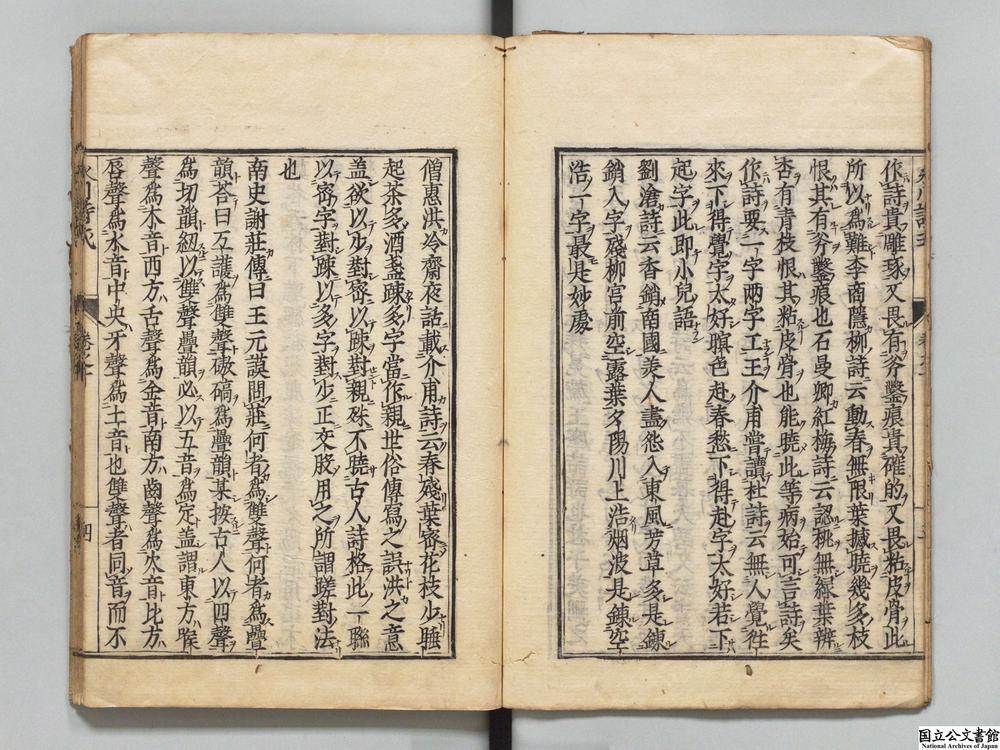 作詩貴雕琢又畏有斧鑿痕貴確的又畏粘皮骨此
所以爲難李商隱柳詩云動春無限葉撼曉幾多枝
恨其有斧鑿痕也石曼卿紅梅詩云認桃無緑葉辨
杏有青枝恨其粘皮骨也能曉此等病始可言詩矣
作詩要一字兩字工王介甫嘗讀杜詩云無人覺往
來下得覺字太好暝色赴春愁下得赴字太好若下
起字此即小兒語
劉滄詩云香銷南國美人盡怨入東風芳草多是錬
銷入字殘柳宮前空露葉夕陽川上浩烟波是錬空
浩一字最是妙處
僧惠洪冷齋夜話載介甫詩云春殘葉密花枝少睡
起茶多酒盞踈多字當作親世俗傳寫之誤洪之意
盖欲以少對密以踈對親殊不曉古人詩格此一聯
以密字對踈以多字對少正交股用之所謂蹉對法
也
南史謝莊傳曰王元謨問莊何者爲雙聲何者爲疊
韻荅曰互護爲雙聲磝碻爲疊韻某按古人以四聲
爲切韻紐以雙聲疊韻必以五音爲定盖謂東方㗋
聲爲木音西方舌聲爲金音南方齒聲爲火音北方
唇聲爲水音中央牙聲爲土音也雙聲者同音而不
四
国立公文書館
National Archives of Japan